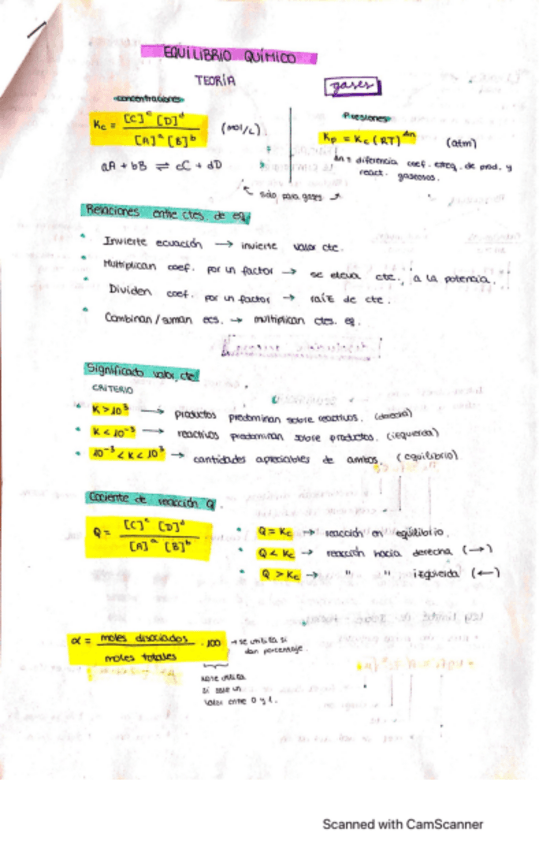 EQUILIBRIO QUÍMICO
TEORÍA
gases
concentraciones
Kc = [C]^c [D]^d / [A]^a [B]^b (mol/L)
aA + bB ⇌ cC + dD
Presiones
Kp = Kc (RT)^Δn (atm)
Δn = diferencia coef. esteq. de prod. y
react. gaseosos.
sólo para gases
Relaciones entre ctes. de eq.
Invierte ecuación → invierte valor cte.
Multiplican coef. por un factor → se eleva cte., a la potencia.
Dividen coef. por un factor → raíz de cte.
Combinan/suman ecs. → multiplican ctes. eq.
Significado valor cte.
CRITERIO
K > 10^3 → productos predominan sobre reactivos. (derecha)
K < 10^-3 → reactivos predominan sobre productos. (izquierda)
10^-3 < K < 10^3 → cantidades apreciables de ambos. (equilibrio)
Cociente de reacción Q.
Q = [C]^c [D]^d / [A]^a [B]^b
Q = Kc → reacción en equilibrio.
Q < Kc → reacción hacia derecha (→)
Q > Kc → " " izquierda (←)
α = moles disociados / moles totales · 100 → se utiliza si
dan porcentaje.
no se utiliza
si sale un
valor entre 0 y 1.
Scanned with CamScanner